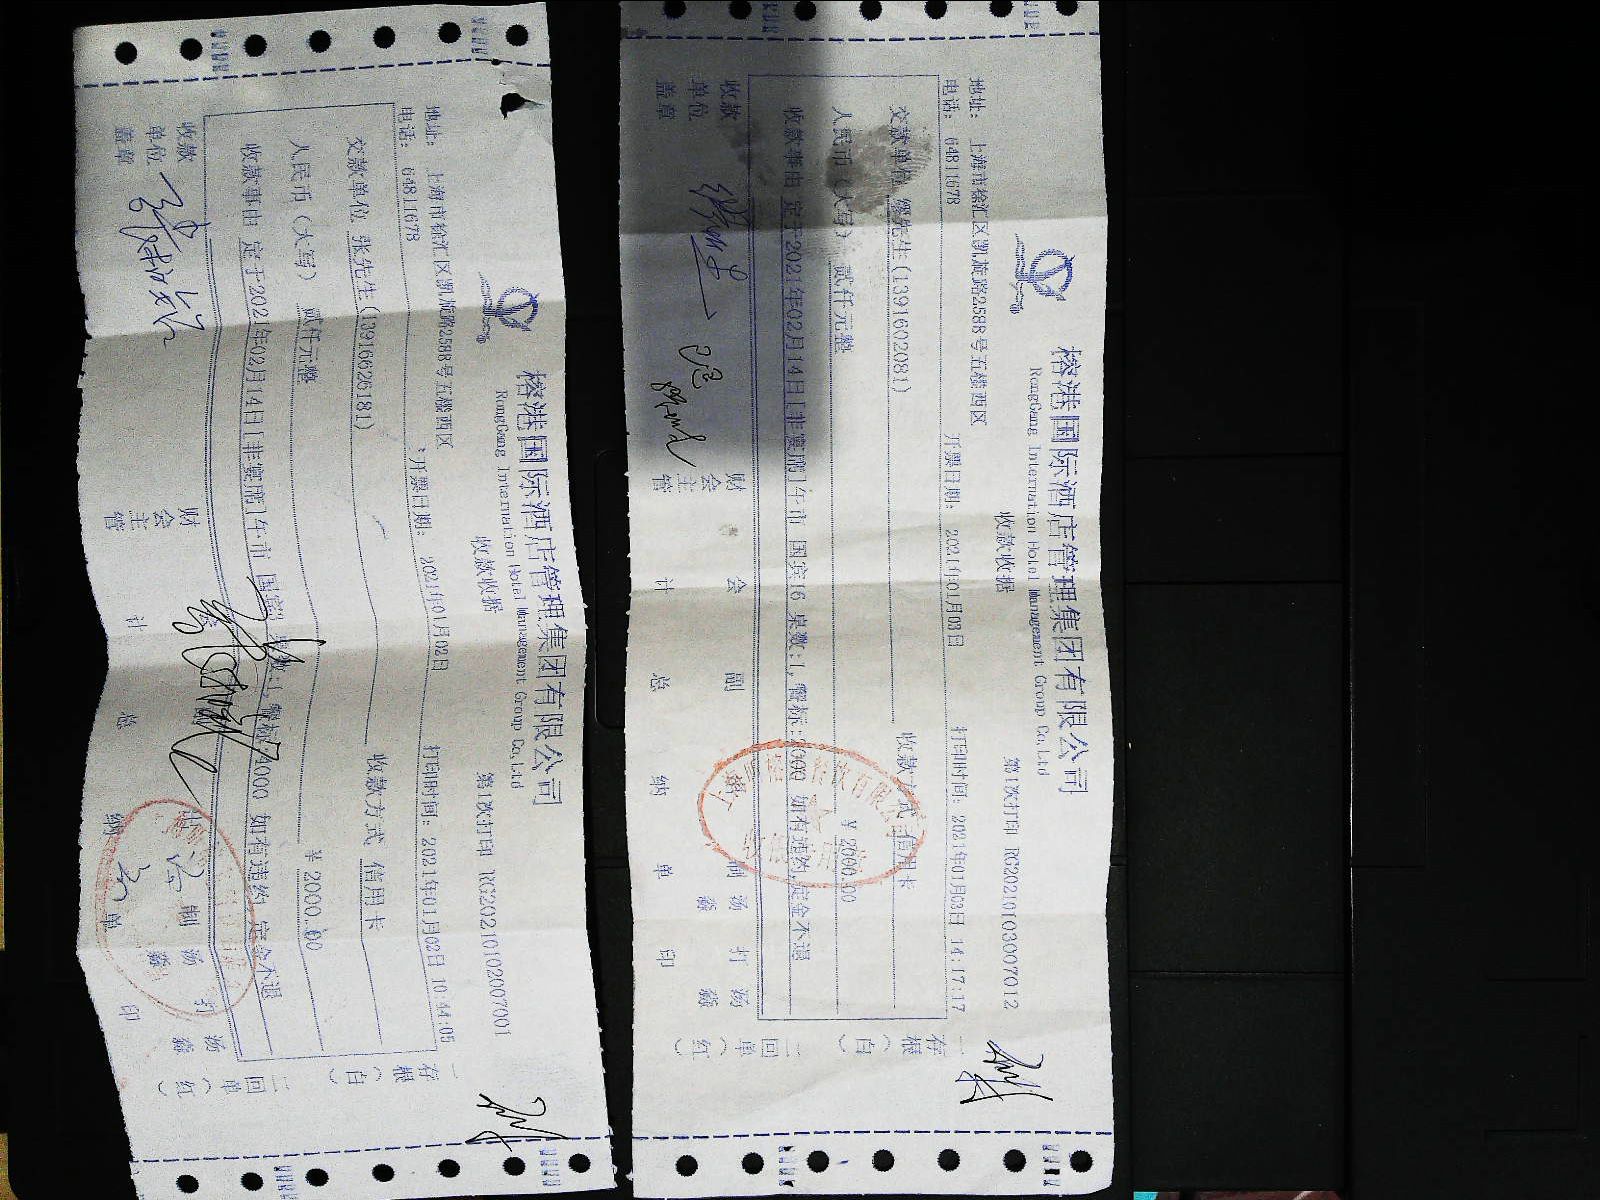 榕港国际酒店管理集团有限公司
RongGang Internation Hotel Management Group Co,Ltd
收款收据
第1次打印 RG20210103007012
地址: 上海市徐汇区凯旋路2588号五楼西区
电话: 64811678
开票日期: 2021年01月03日
打印时间: 2021年01月03日 14:17:17
交款单位 缪先生(13916602081)
收款方式 信用卡
人民币(大写) 贰仟元整
¥ 2000.00
收款事由 定于2021年02月14日[非宴席]午市 国宾16 桌数:1,餐标:3000 如有违约,定金不退
收款单位盖章
财会主管
会计
副总
出纳
制单
汤磊
打印
汤磊
一存根(白)
二回单(红)
榕港国际酒店管理集团有限公司
RongGang Internation Hotel Management Group Co,Ltd
收款收据
第1次打印 RG20210102007001
地址: 上海市徐汇区凯旋路2588号五楼西区
电话: 64811678
开票日期: 2021年01月02日
打印时间: 2021年01月02日 10:44:05
交款单位 张先生(13916626181)
收款方式 信用卡
人民币(大写) 贰仟元整
¥ 2000.00
收款事由 定于2021年02月14日[非宴席]午市 国宾 桌数:1 餐标:4000 如有违约,定金不退
收款单位盖章
财会主管
会计
总
出纳
制单
汤磊
打印
汤磊
一存根(白)
二回单(红)